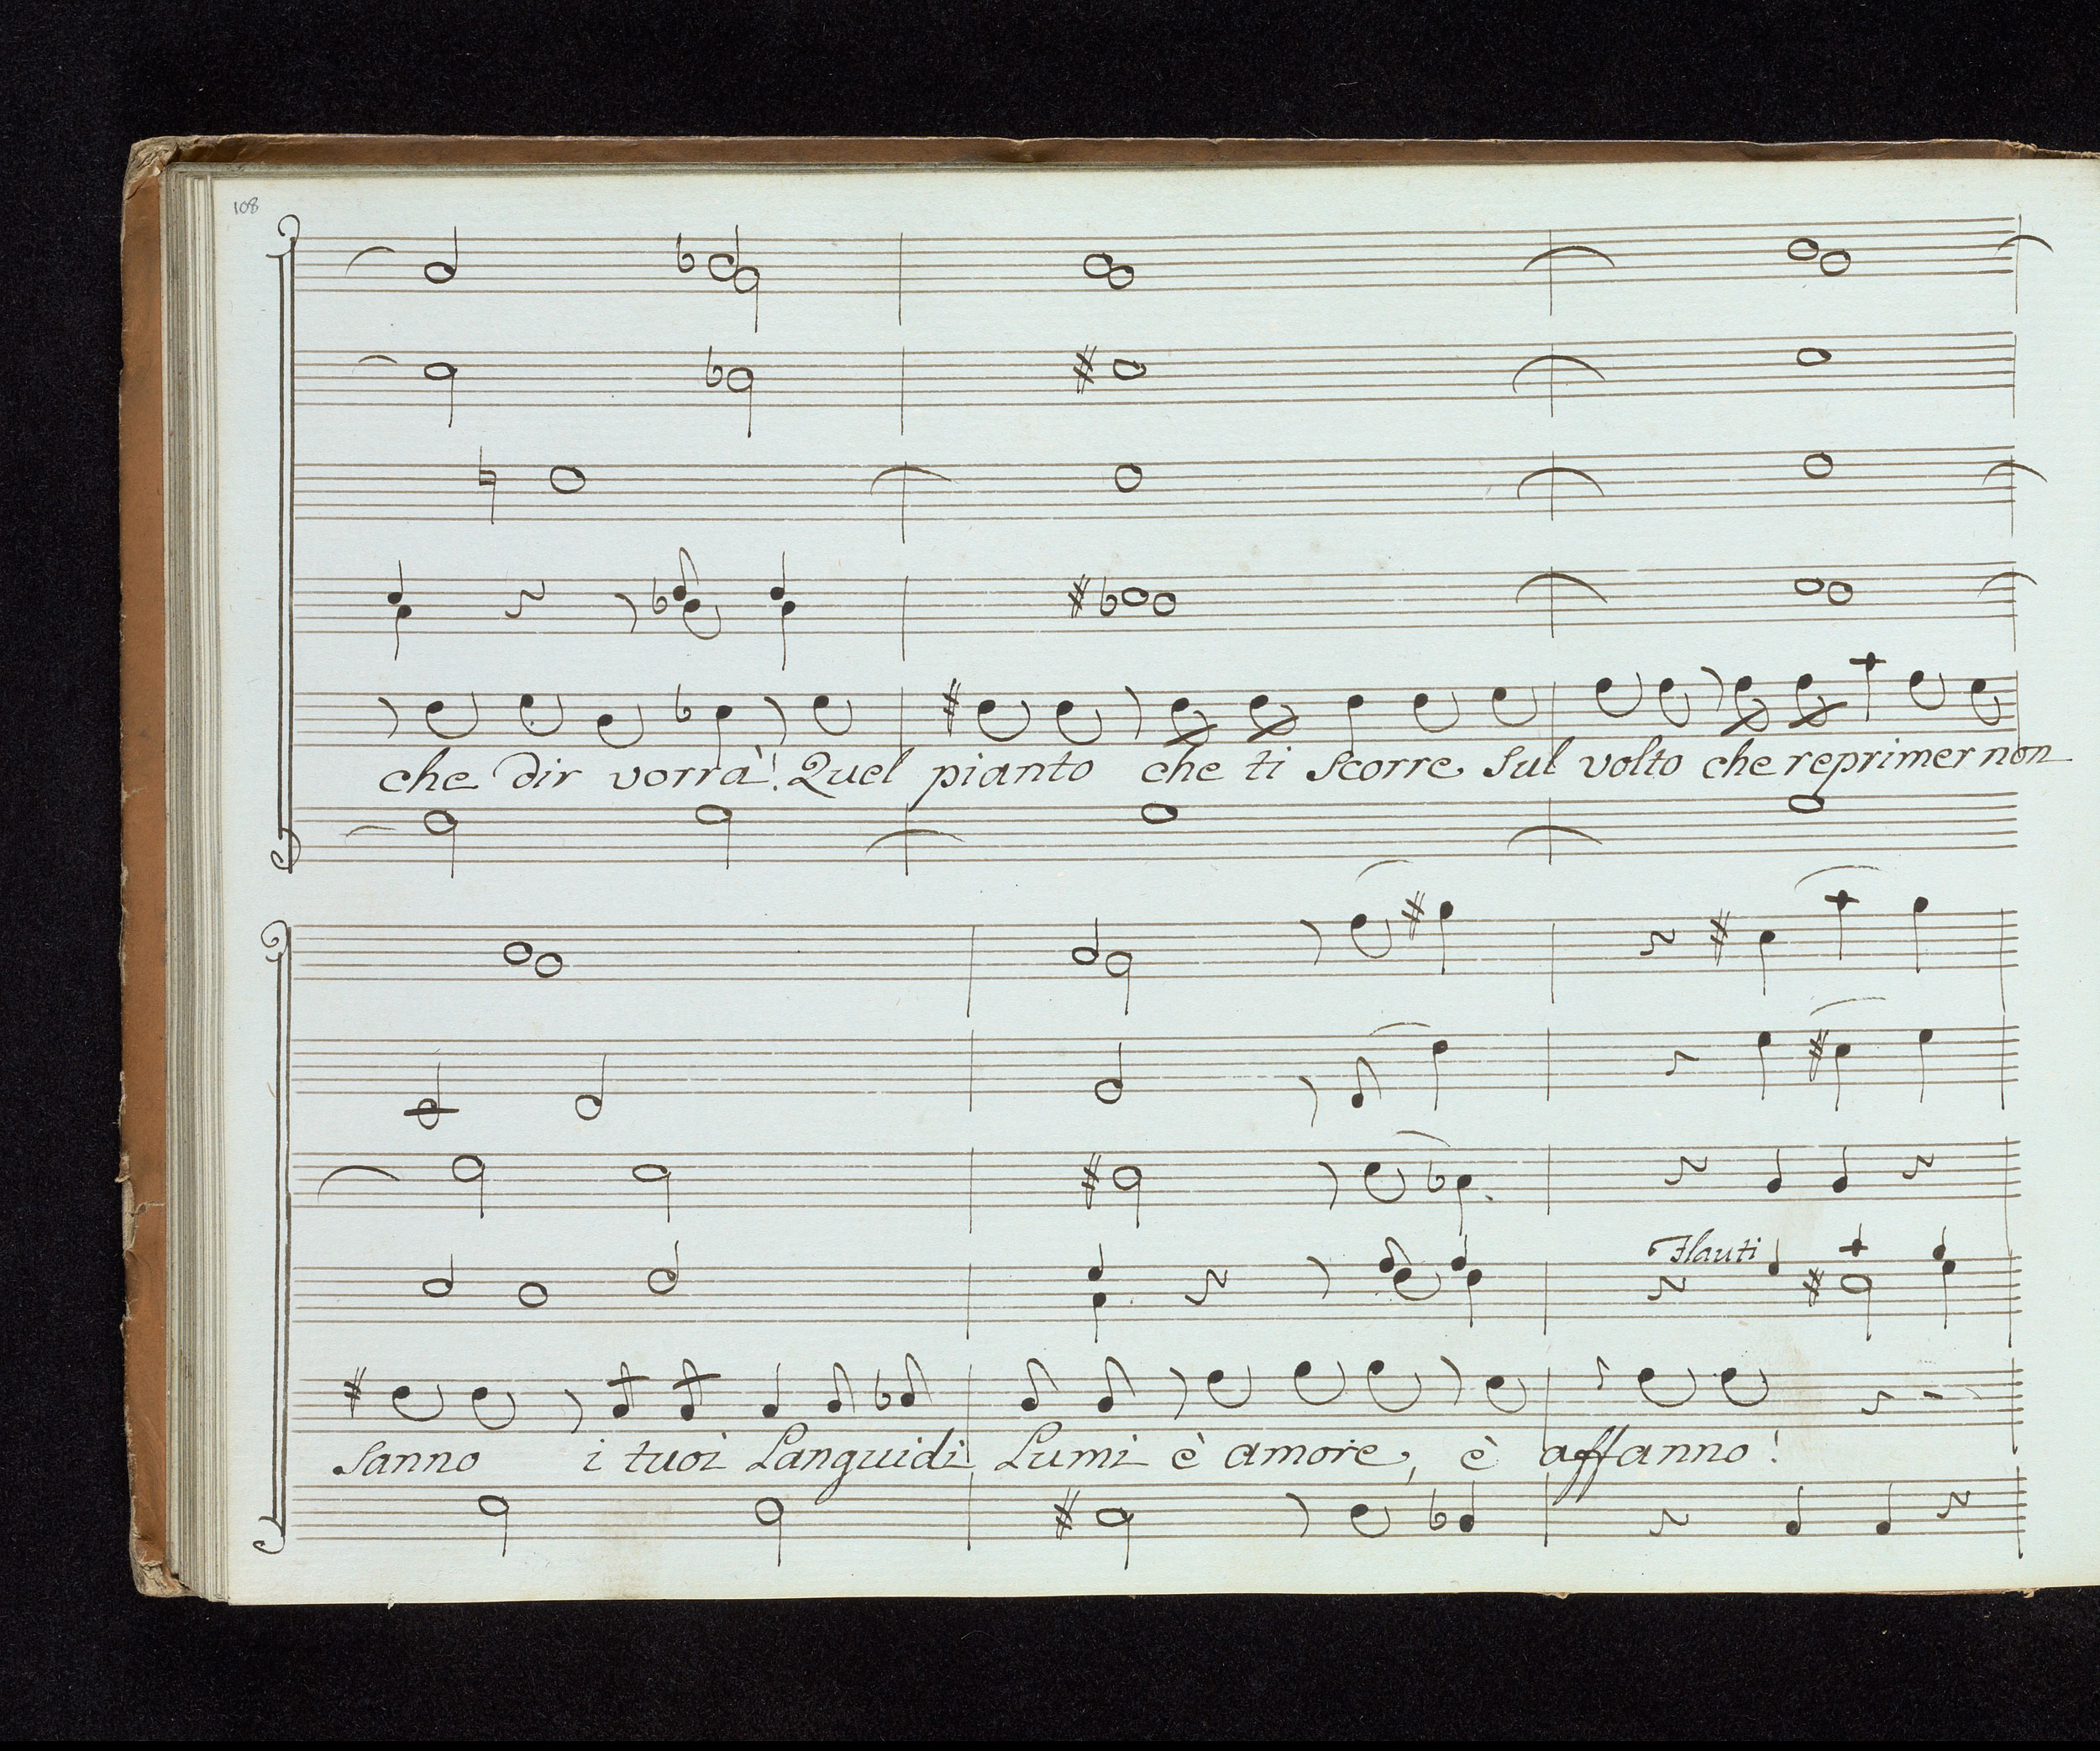 108
che dir vorrà! Quel pianto che ti scorre sul volto che reprimer non
Flauti
sanno i tuoi Languidi Lumi è amore, è affanno!